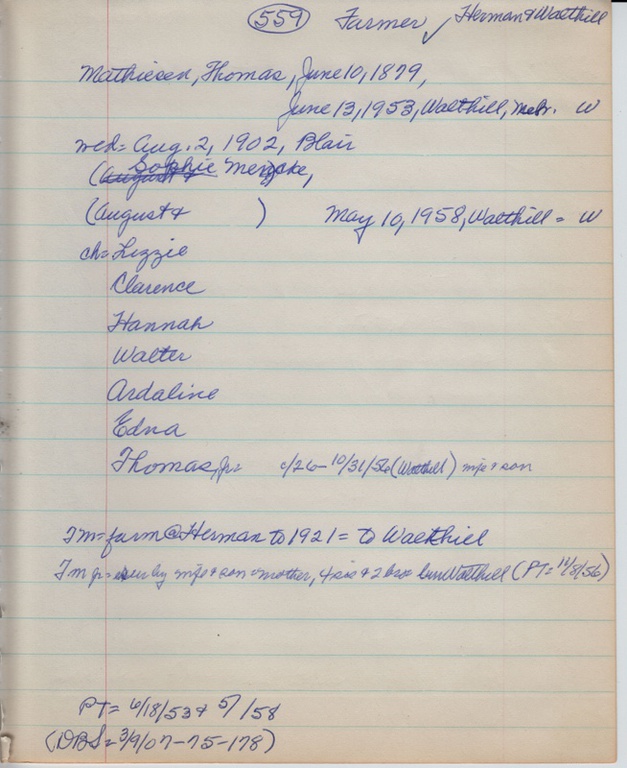 559 Farmer ✓ Herman & Walthill
Mathiesen, Thomas, June 10, 1879,
June 13, 1953, Walthill, Nebr. W
wed= Aug. 2, 1902, Blair
(August & Sophie
(August & ) May 10, 1958, Walthill = W
ch= Lizzie
Clarence
Hannah
Walter
Ardaline
Edna
Thomas, Jr. c/26 - 10/31/56 (Walthill) wife & son
TM= farm @ Herman to 1921 = to Walthill
TM jr = surv by wife & son = mother, 4 sis & 2 bro bur Walthill (PT= 11/8/56)
PT= 6/18/53 & 5/ /58
(DBS= 3/9/07-75-178)